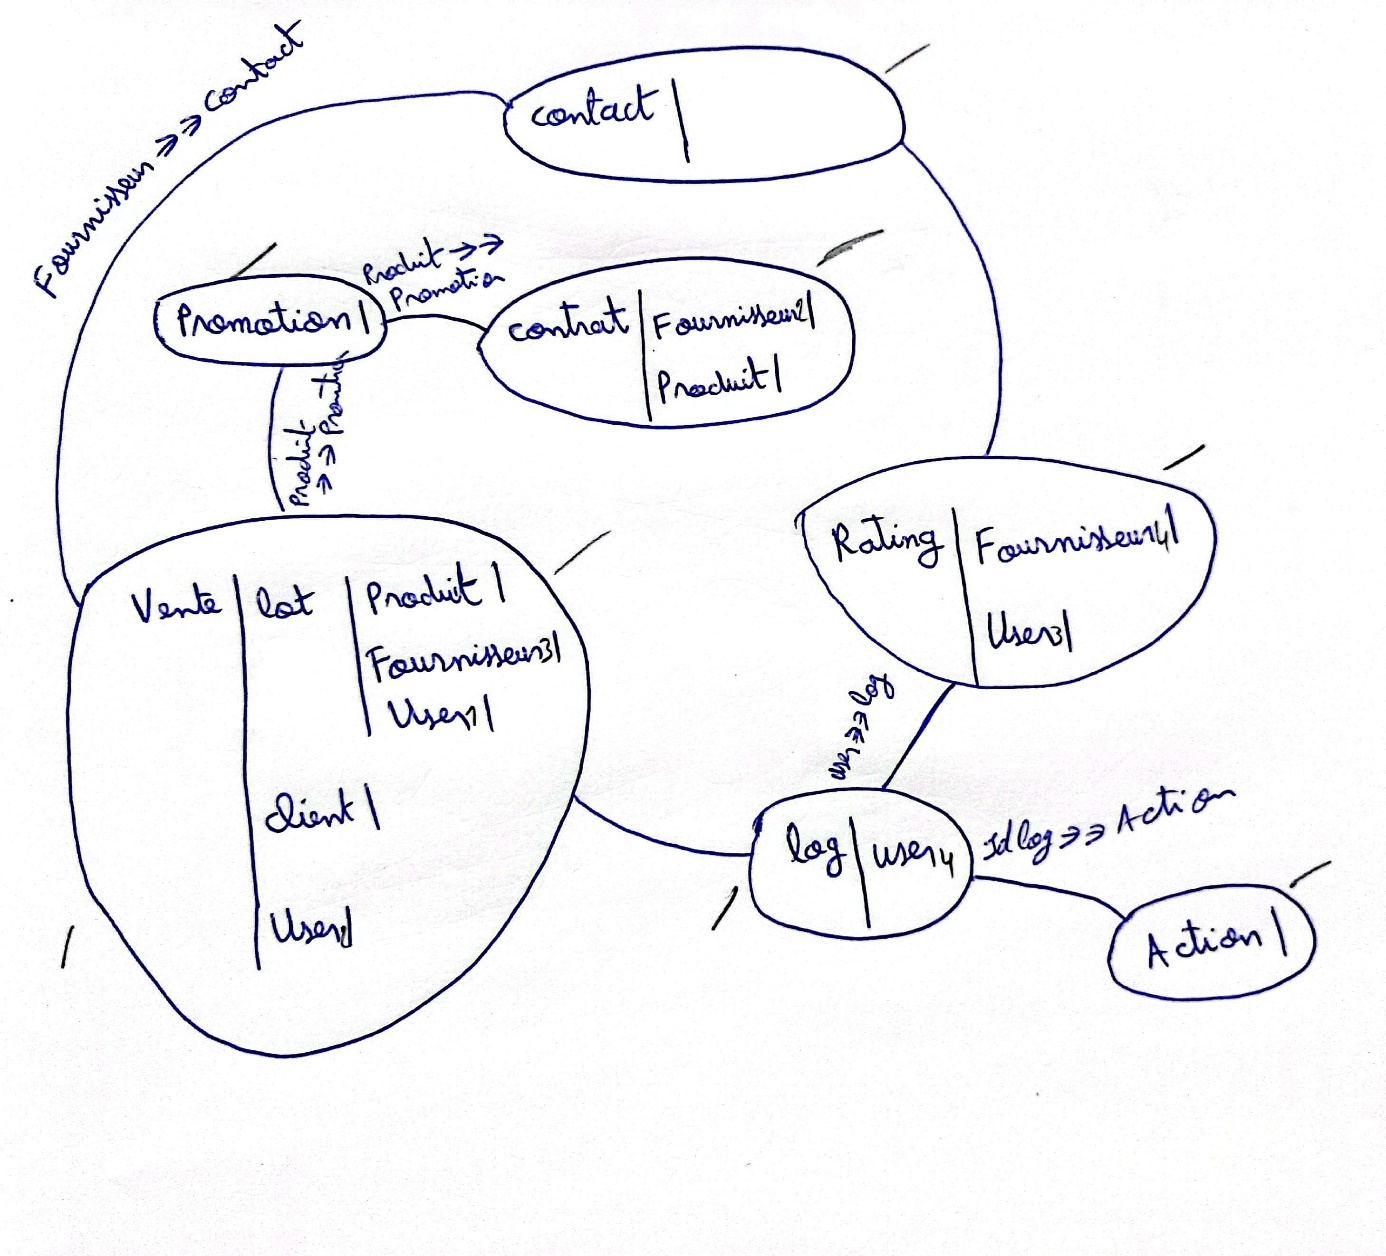 Fournisseur →→ Contact
contact |
Promotion |
Produit →→
Promotion
contrat | Fournisseur2 |
Produit |
Produit
→→ Promotion
Rating | Fournisseur4 |
User3 |
Vente | lot | Produit |
Fournisseur3 |
User1 |
client |
User2 |
user →→ log
log | user4
Idlog →→ Action
Action |